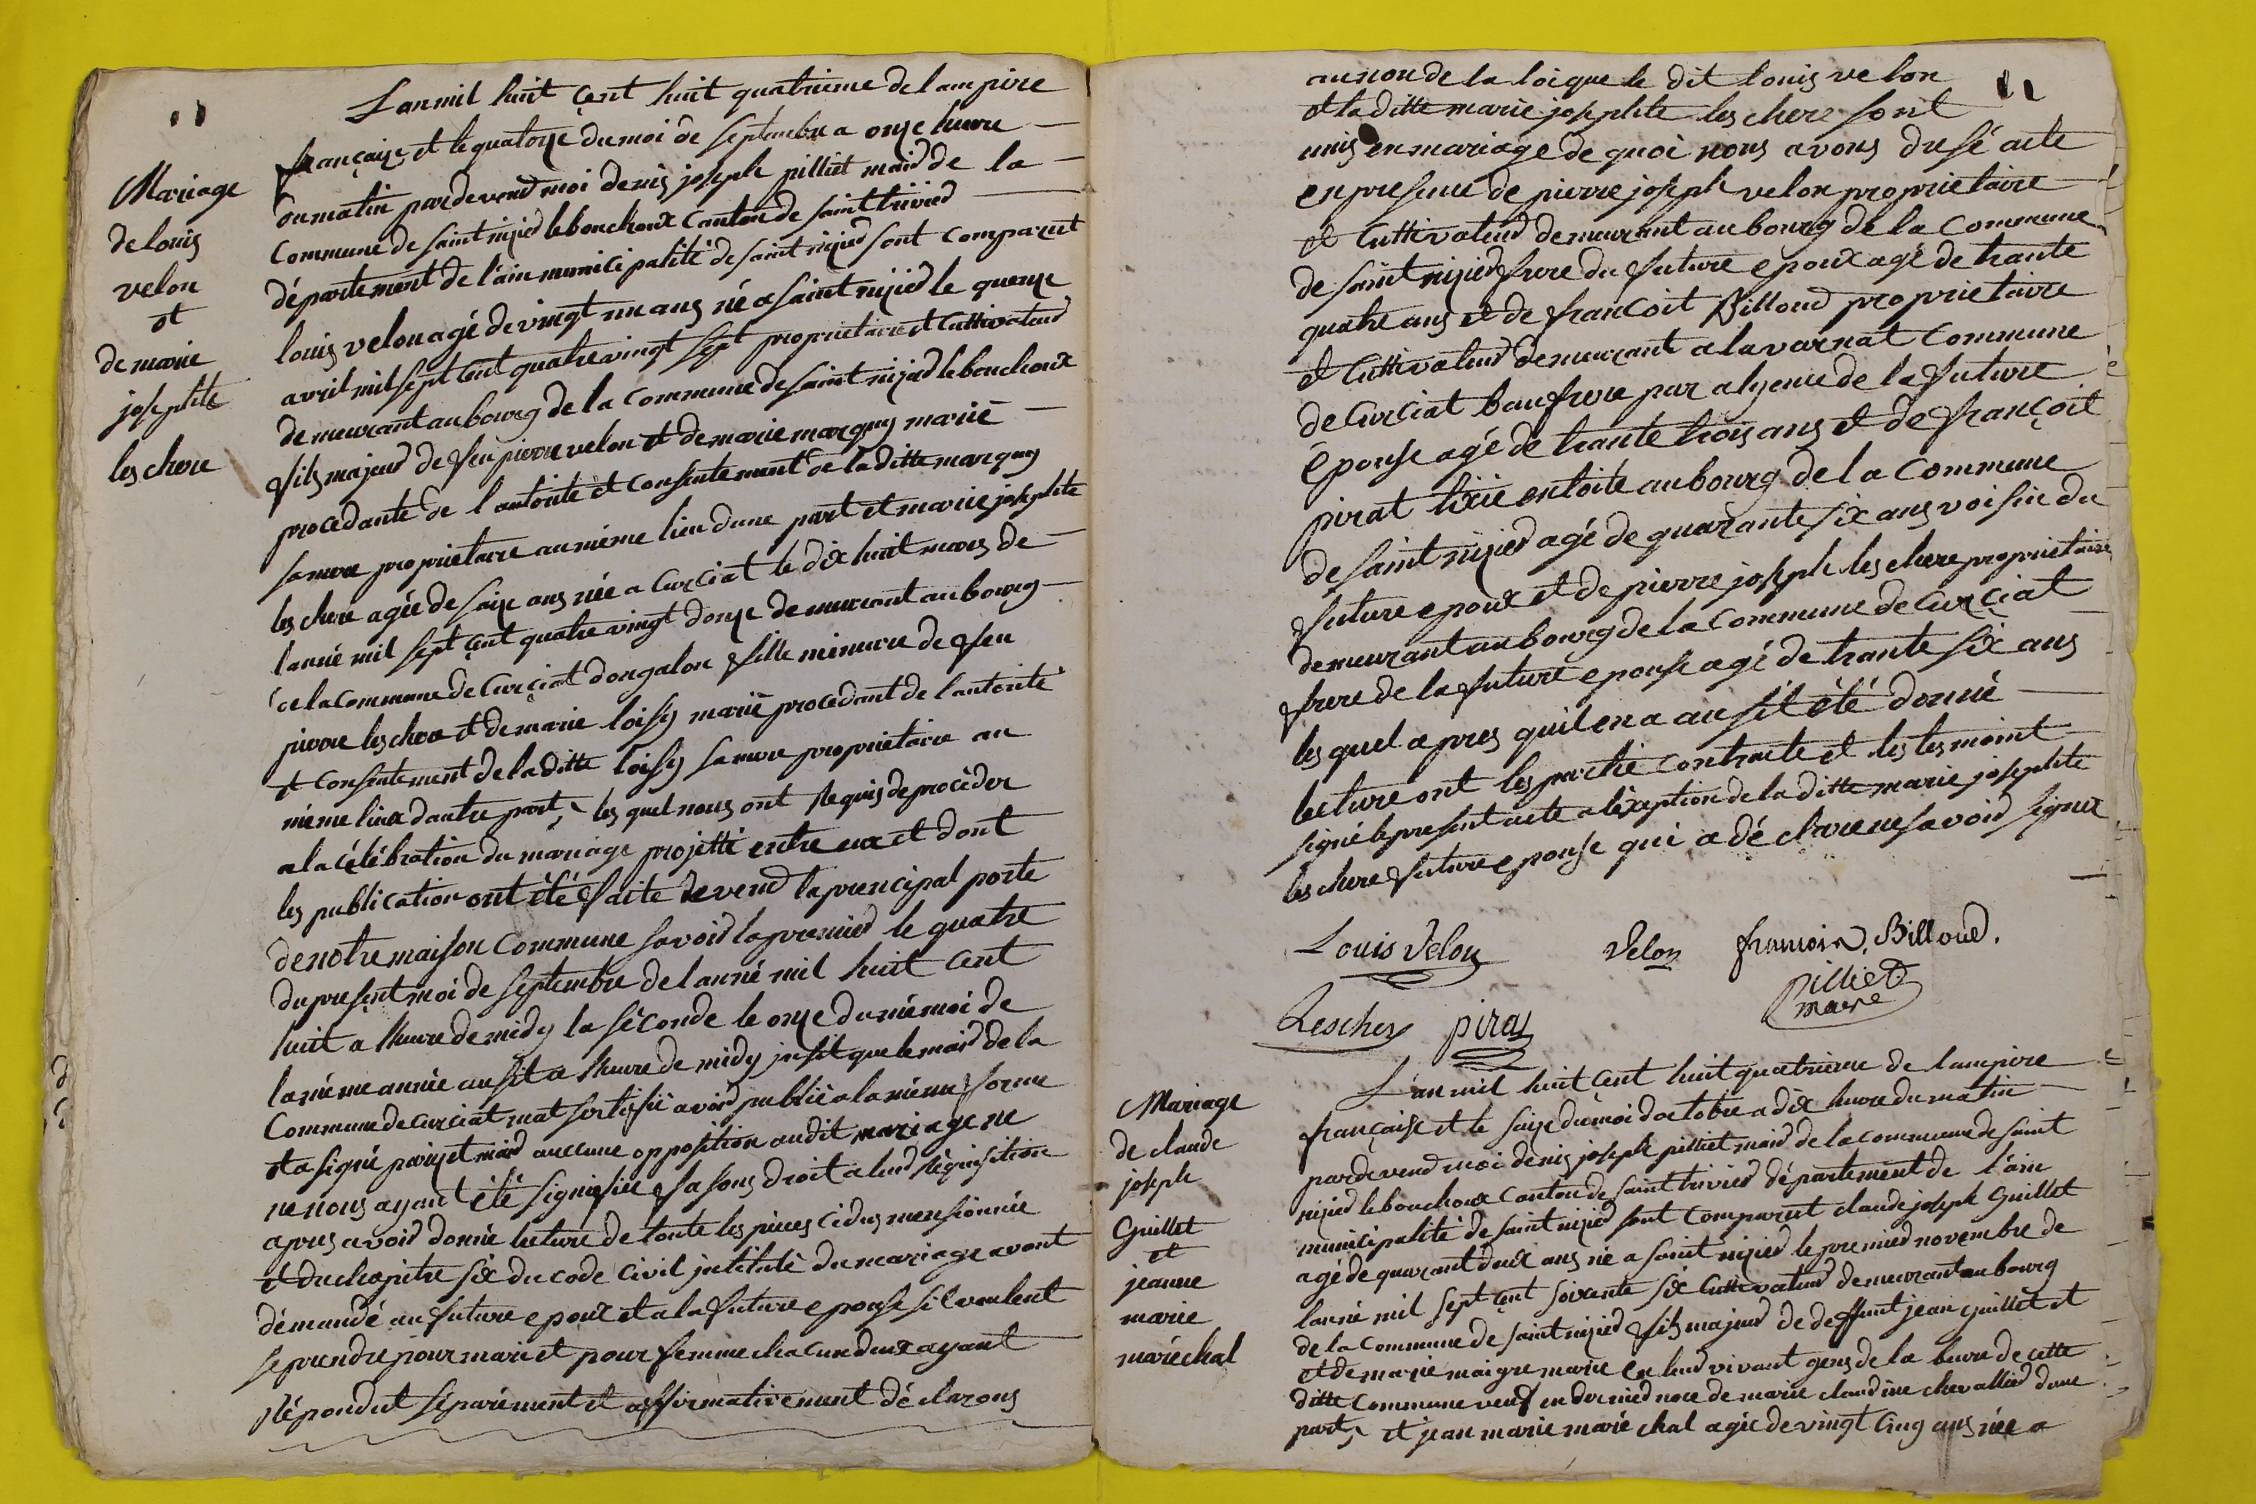 11
Mariage
de louis
velon
et
de marie
josephte
les chere
Lan mil huit çent huit quatrieme de lampire
française et le quatorze du moi de septembre a onze heure
du matin par devend moi denis joseph pilliet maid de la
Commune de saint nizied le bouchoux Canton de saint trivied
département de l'ain municipalité de saint nizied sont comparut
louis velon agé de vingt un ans né a saint nizied le quenze
avril mil sept cent quatre vingt sept proprietaire et Cultivateud
demeurant au bourg de la Commune de saint nizied le bouchoux
fils majeud de feu pierre velon et de marie marguy marié
procedante de l autorité et consentement de la ditte marguy
sa mere proprietaire au même lieu dune part et marie josephte
les chere agée de saize ans née a Curçiat le dix huit mars de
lanné mil sept çent quatre vingt douze demeurant au bourg
de la Commune de Curçiat dongalon fille mineure de feu
pierre les chere et de marie loisy marié procedant de lautorité
et Consentement de la ditte loisy sa mere proprietaire au
méme lieu dautre part, les quel nous ont requis de procéder
a la célébration du mariage projetté entre eux et dont
les publication ont été faite devend la prencipal porte
de notre maison commune savoid la premied le quatre
du present moi de septembre de lanné mil huit cent
huit a lheure de midy la séconde le onze du mémoi de
la méme année ausit a lheure de midy insit que le maid de la
Commune de curciat mat sertifié avoid publié a la méme forme
et a signé parizet maid auccune opposition audit mariage ne
ne nous ayant été signifiée fasons droit a leud réquisition
apres avoid donné lecture de toute les pieces cidus mensionnée
et du chapitre six du code civil intitulé du mariage avont
démandé au future epoux et a la future epouse sil veulent
se prendre pour mari et pour femme chacun deux ayant
répondut séparément et affirmativement déclarons
11
au non de la loi que le dit louis velon
et la ditte marie josephte les chere sont
unis en mariage de quoi nous avons dusé acte
en presence de pierre joseph velon proprietaire
et Cultivateud demeurant au bourg de la Commune
de saint nizied frere du future epoux agé de trante
quatre ans et de francoit Billoud proprietaire
et Cultivateud demeurant a la varnat Commune
de Curciat baufrere par alyence de la future
épouse agé de trante trois ans et de françoit
pirat lixié enloite au bourg de la Commune
de saint nizied agé de quarante six ans voisin du
future epoux et de pierre joseph les chere proprietaire
demeurant au bourg de la Commune de Curçiat
frere de la future epouse agé de trante six ans
les quel apres quil en a ausit été donné
lecture ont les partie contracte et les tesmoint
signé le present acte a léxeption de la ditte marie josephte
les chere future epouse qui a dé claré ne savoid signer
Louis Velon Velon francois Billoud.
pilliet
maire
Lescher pirat
Mariage
de claude
joseph
Guillet
et
jeanne
marie
maréchal
L'an mil huit çent huit quatrieme de lampire
française et le saize du moi doctobre a dix heure du matin
par devend moi denis joseph pilliet maid de la commune de saint
nizied le bouchoux Canton de saint trivied département de l'ain
municipalité de saint nizied sont Comparut claude joseph Guillet
agé de quarant deux ans né a saint nizied le premied novembre de
lanné mil sept çent soixante six Cultivateud demeurant au bourg
de la Commune de saint nizied fils majeud de deffunt jean guillet et
et de marie maigre marié en leud vivant gens de la beure de cette
ditte Commune veuf en dernied noce de marie claudine chevallied dune
part, et jean marie maré chal agée de vingt Cinq ans née a